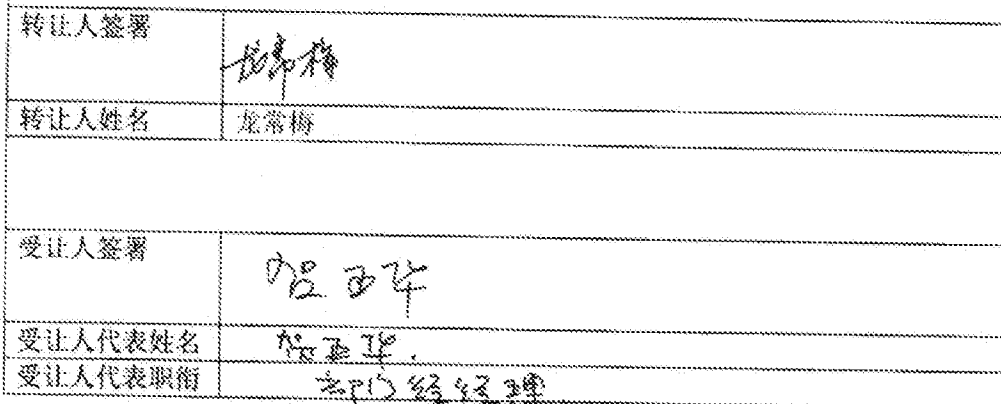 转让人签署 龙常梅
转让人姓名 龙常梅
受让人签署 贺正华
受让人代表姓名 贺正华.
受让人代表职衔 部门经经理